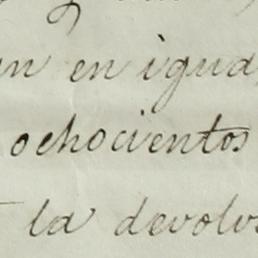 en igual
ochocientos
la devolv